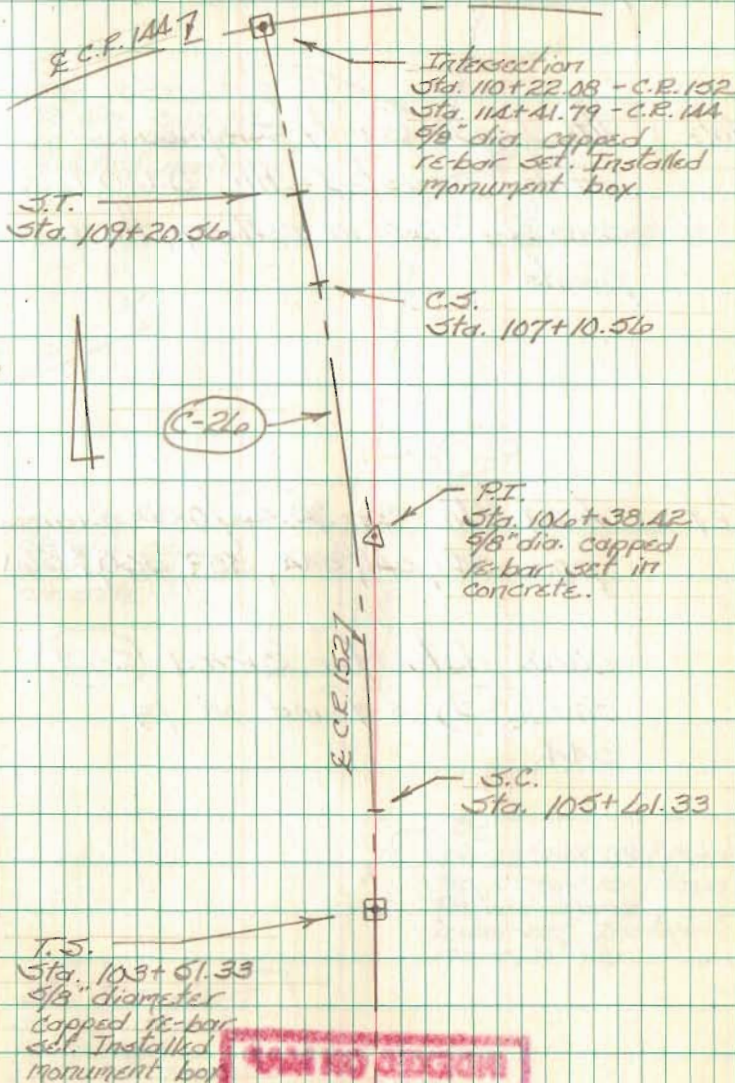 ℄ C.R. 144
Intersection
Sta. 110+22.08 - C.R. 152
Sta. 114+41.79 - C.R. 144
5/8" dia. capped
re-bar set. Installed
monument box.
S.T.
Sta. 109+20.56
C.S.
Sta. 107+10.56
C-26
P.I.
Sta. 106+38.42
5/8" dia. capped
re-bar set in
concrete.
℄ C.R. 152
S.C.
Sta. 105+61.33
T.S.
Sta. 103+51.33
5/8" diameter
capped re-bar
set. Installed
monument box